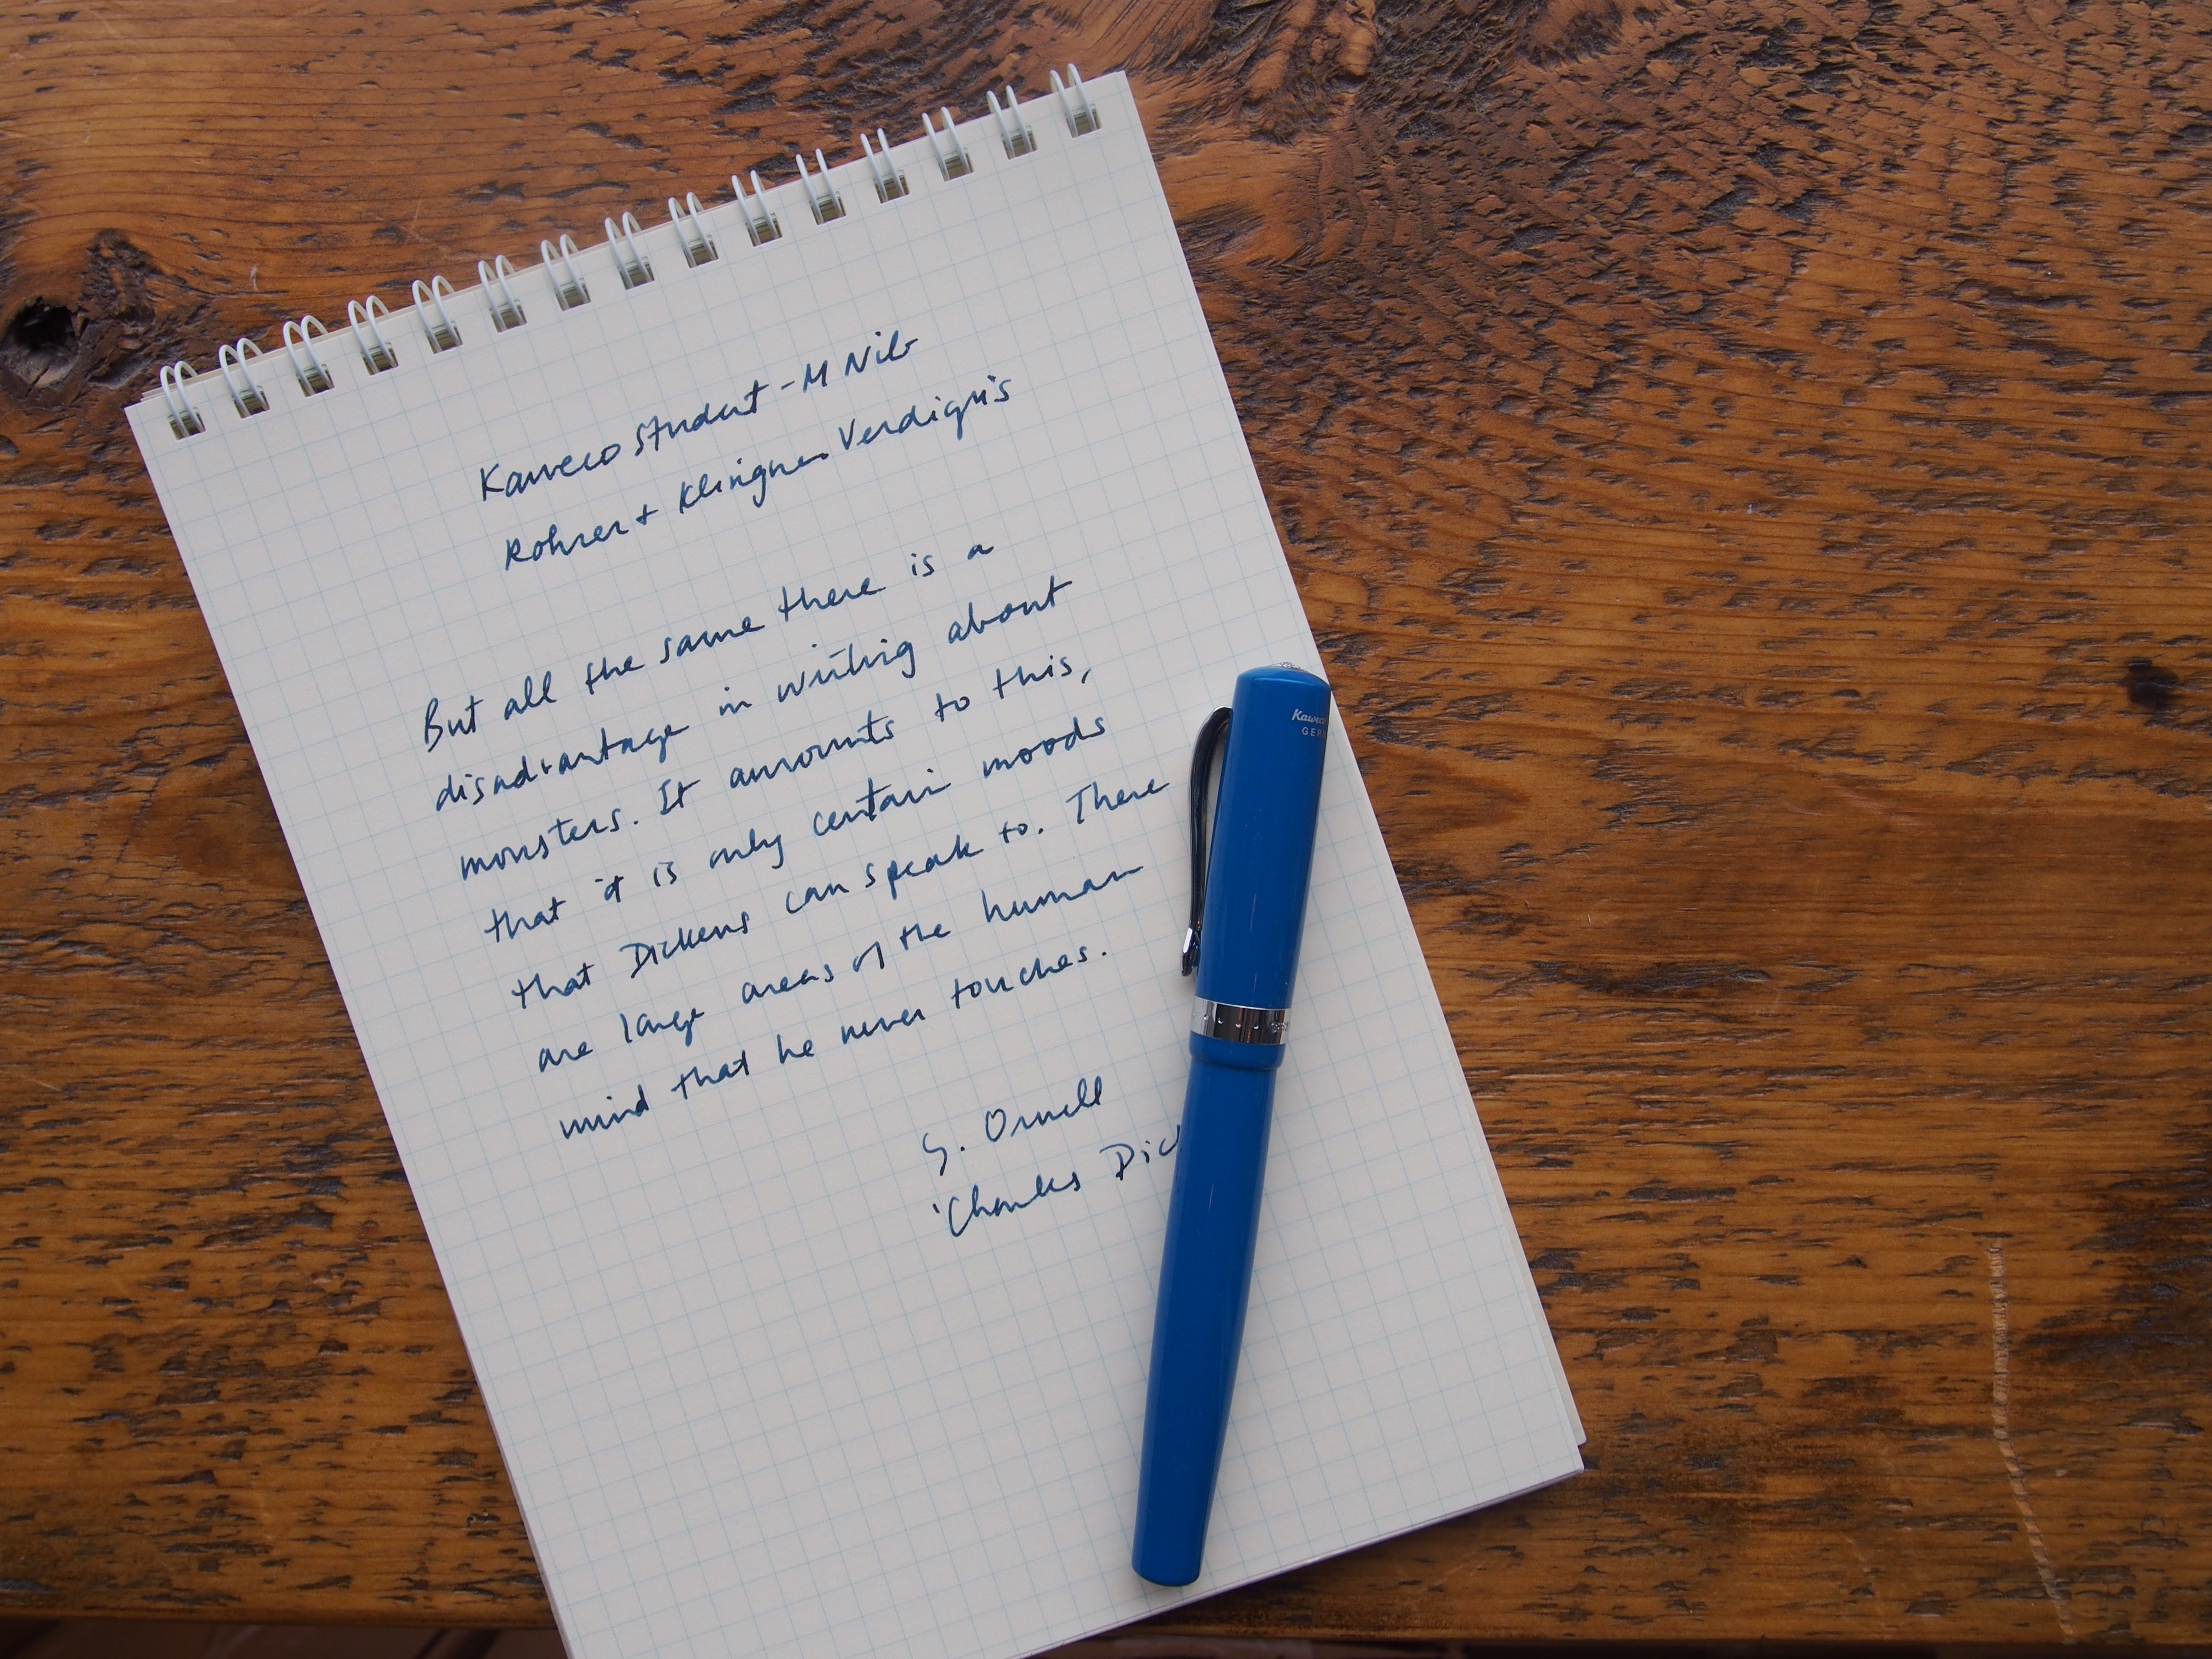 Kaweco Student - M Nib
Rohrer + Klingner Verdigris
But all the same there is a
disadvantage in writing about
monsters. It amounts to this,
that it is only certain moods
that Dickens can speak to. There
are large areas of the human
mind that he never touches.
G. Orwell
'Charles Dic
Kaweco
GER